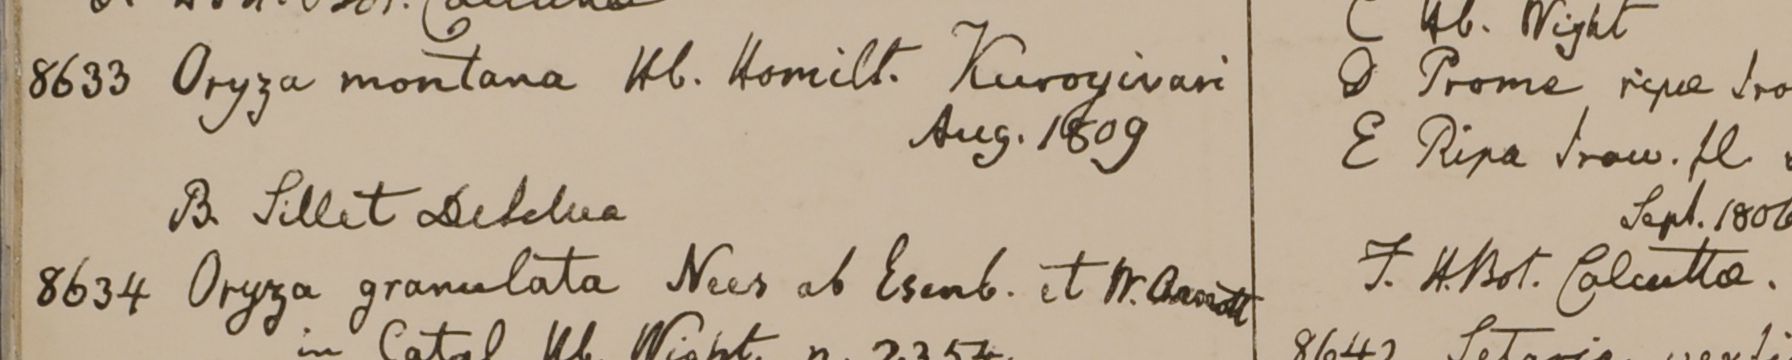 H. Bot. Calcutta
8633 Oryza montana Hb. Homilt. Kuroyivari
Aug. 1809
B. Sillet
8634 Oryza granulata Nees ab Esenb. et W. Arnott
in Catal Hb. Wight. n. 2354.
C Hb. Wight
D Prome ripa
E Ripa Iraw. fl.
Sept. 1806
F. H. Bot. Calcutta.
8642 Setaria